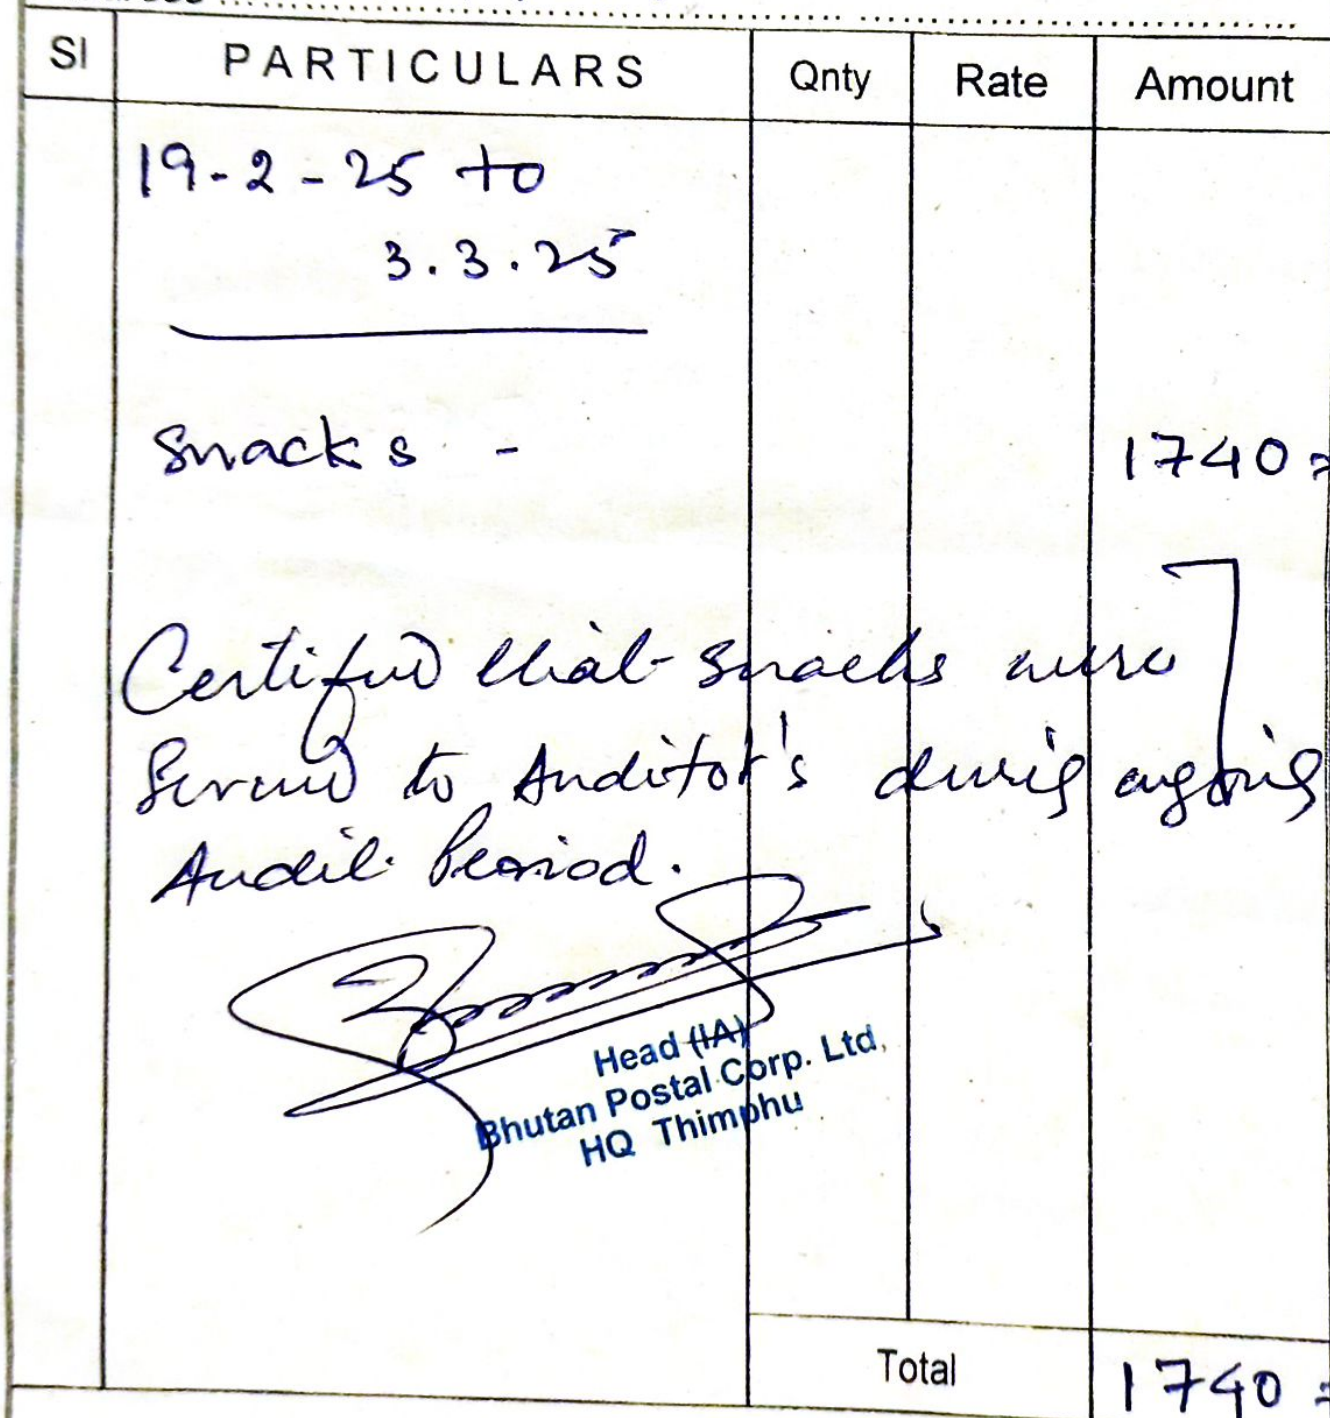 Sl PARTICULARS Qnty Rate Amount
19-2-25 to
3.3.25
Snacks - 1740=
Certified that snacks were
Served to Auditor's during ongoing
Audit Period.
Head (IA)
Bhutan Postal Corp. Ltd,
HQ Thimphu
Total 1740=